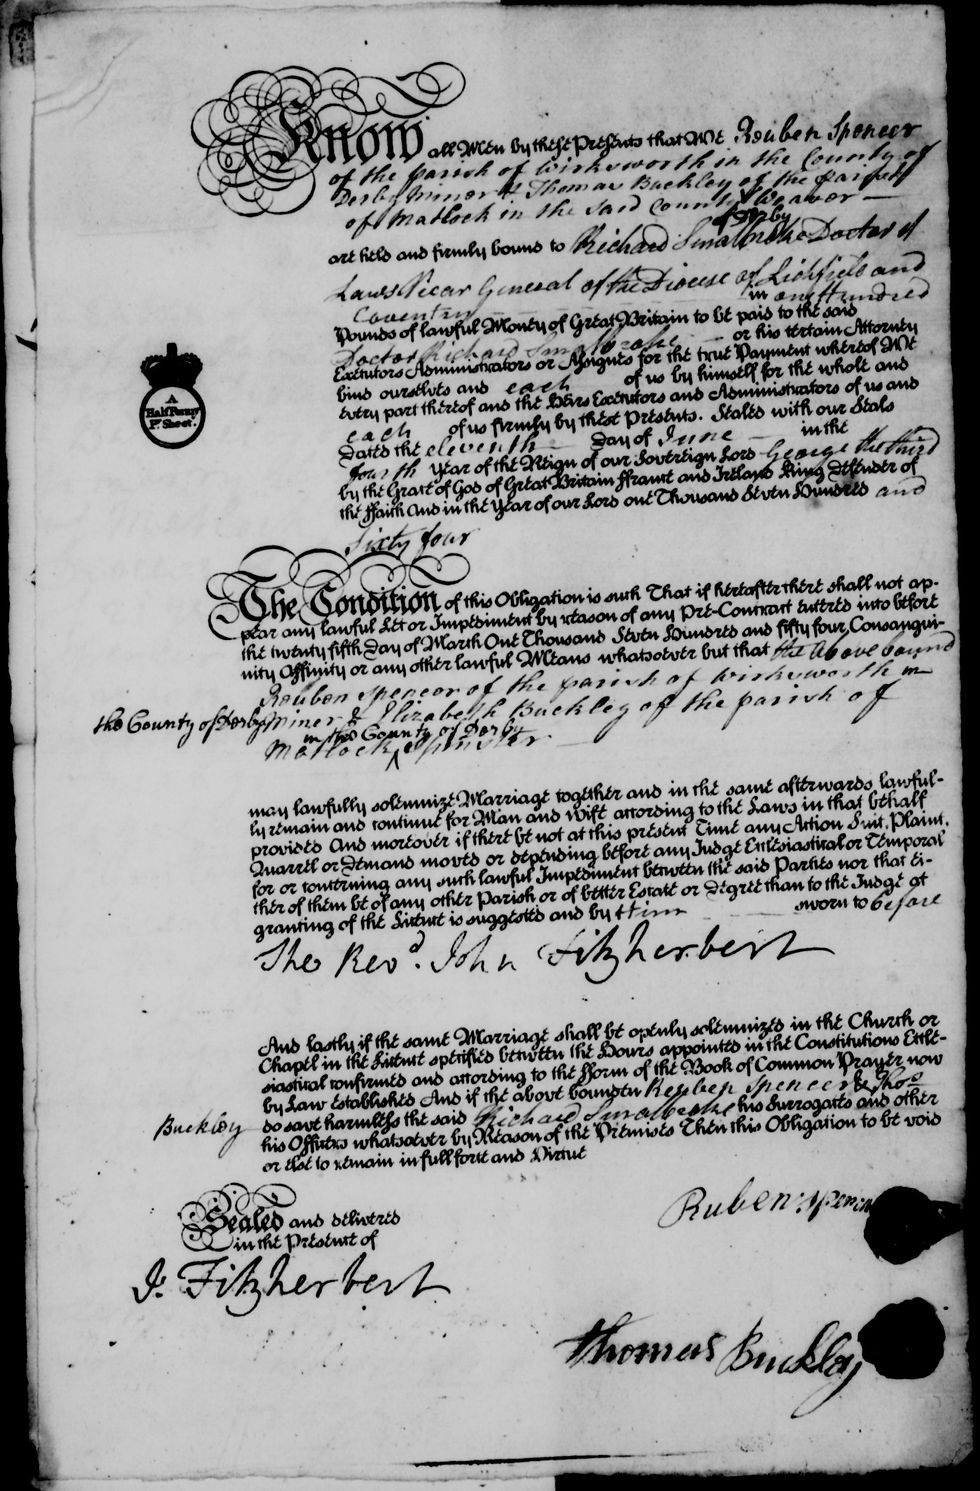 Know all Men by these Presents that We Reuben Spencer
of the parish of Wirksworth in the County of
Derby Miner & Thomas Buckley of the parish
of Matlock in the said County Weaver
of Derby
are held and firmly bound to Richard Smalbroke Doctor of
Laws Vicar General of the Diocese of Lichfield and
Coventry in one Hundred
Pounds of lawful Money of Great Britain to be paid to the said
Doctor Richard Smalbroke or his certain Attorney
Executors Administrators or Assignes for the true Payment whereof We
bind ourselves and each of us by himself for the whole and
every part thereof and the Heirs Executors and Administrators of us and
each of us firmly by these Presents. Sealed with our Seals
Dated the eleventh Day of June in the
fourth Year of the Reign of our Sovereign Lord George the third
by the Grace of God of Great Britain ffrance and Ireland King Defender of
the ffaith And in the Year of our Lord One Thousand Seven Hundred and
Sixty four
A
Half Penny
Pr. Sheet.
The Condition of this Obligation is such That if hereafter there shall not ap-
pear any lawful Let or Impediment by reason of any Pre-Contract entered into before
the twenty fifth Day of March One Thousand Seven Hundred and fifty four, Consangui-
nity Affinity or any other lawful Means whatsoever but that the above bound
Reuben Spencer of the parish of Wirksworth in
the County of Derby Miner & Elizabeth Buckley of the parish of
in the County of Derby
Matlock ^ Spinster
may lawfully solemnize Marriage together and in the same afterwards lawful-
ly remain and continue for Man and Wife according to the Laws in that behalf
provided And moreover if there be not at this present Time any Action Suit, Plaint,
Quarrel or Demand moved or depending before any Judge Ecclesiastical or Temporal
for or concerning any such lawful Impediment between the said Parties nor that ei-
ther of them be of any other Parish or of better Estate or Degree than to the Judge at
granting of the Licence is suggested and by Him sworn to before
The Revd. John Fitzherbert
And lastly if the same Marriage shall be openly solemnized in the Church or
Chapel in the Licence specified between the Hours appointed in the Constitutions Eccle-
siastical confirmed and according to the fform of the Book of Common Prayer now
by Law established And if the above bounden Reuben Spencer & Thos
Buckley do save harmless the said Richard Smalbroke his Surrogates and other
his Officers whatsoever by Reason of the Premises Then this Obligation to be void
or else to remain in full force and Virtue
Sealed and delivered
in the Presence of
J. Fitzherbert
Ruben Spencer
Thomas Buckley